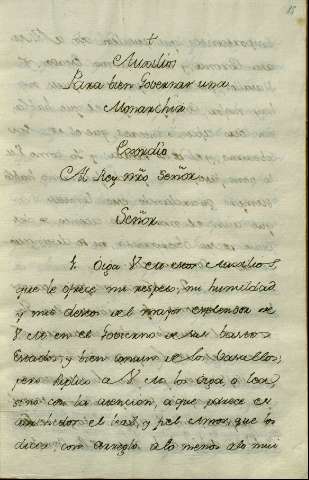 15
+
Auxilios
Para bien Governar una
Monarchia
Exordio
Al Rey nŕo Señor
Señor
1. Oiga V M estos Auxilios,
que le ofrece mi respeto, mi humildad
y mis deseos del mayor esplendor de
V M en el Govierno de sus bastos
Estados, y bien comun de los Vasallos;
pero suplico a V M los oiga, o lea,
sino con la atencion, a que parece es
acrehedor el leal, y fiel Amor, que los
dicta; con arreglo a lo menos a lo mui